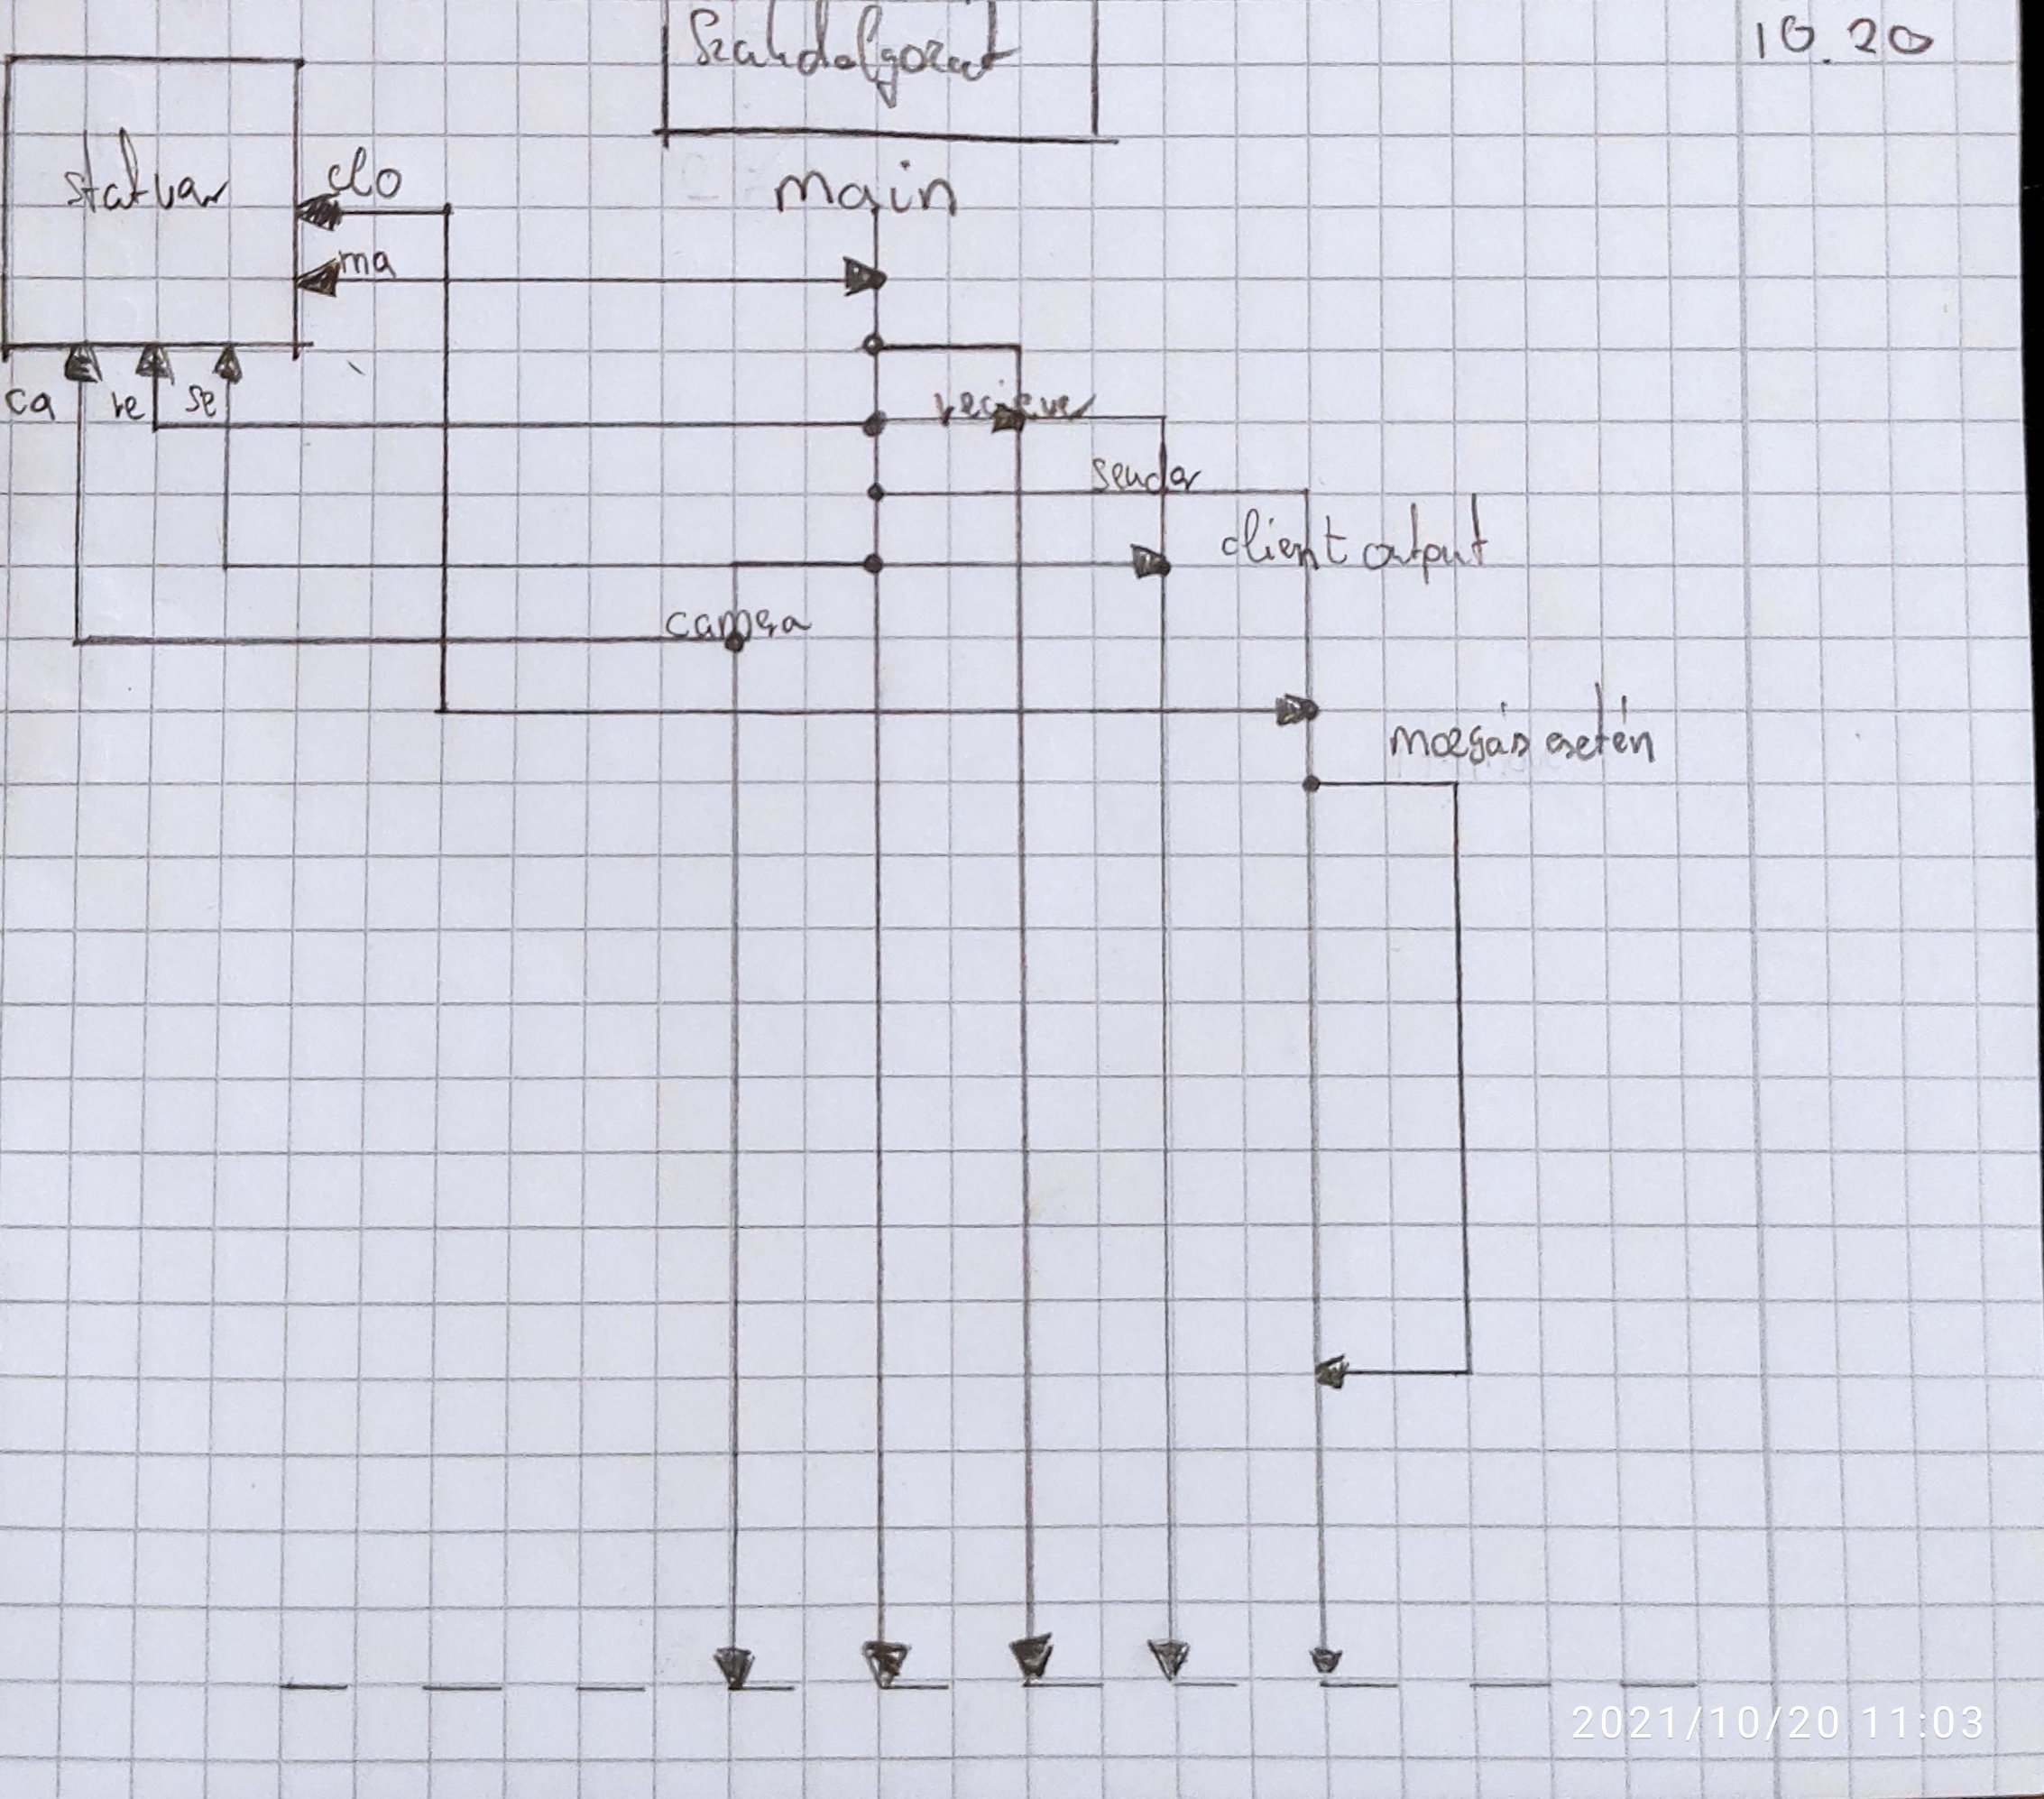 Szakdolgozat
10.20
statvar
clo
main
ma
ca
re
se
reciever
sender
client output
camera
mozgás esetén
2021/10/20 11:03